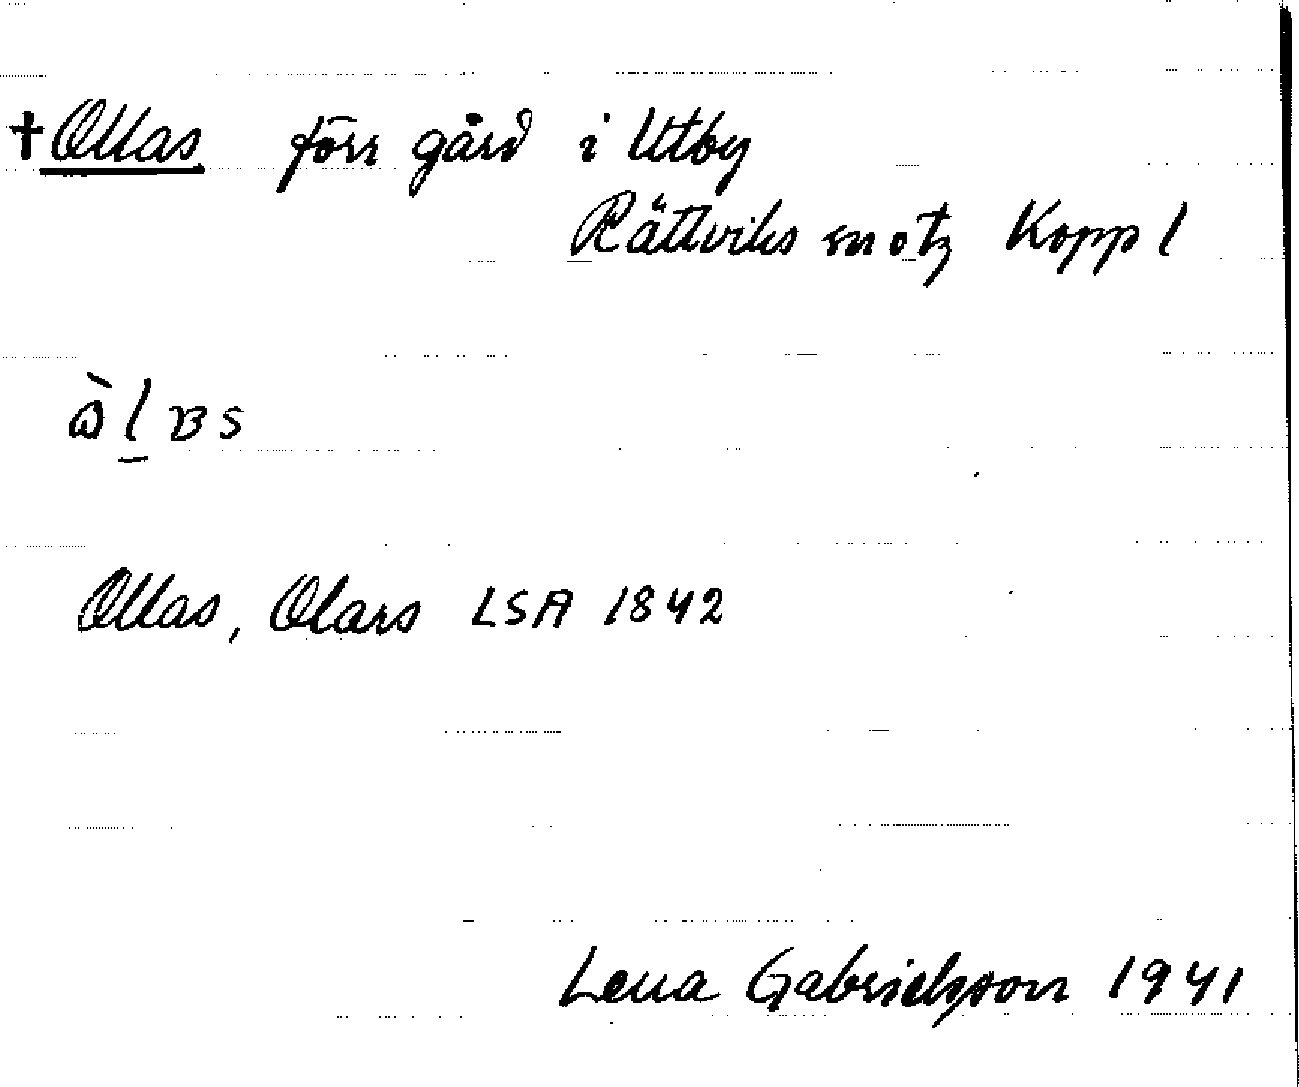 †Ollas förr gård i Utby
Rättviks sn o tg Kopp l
Ollas, Olars LSA 1842
Lena Gabrielsson 1941